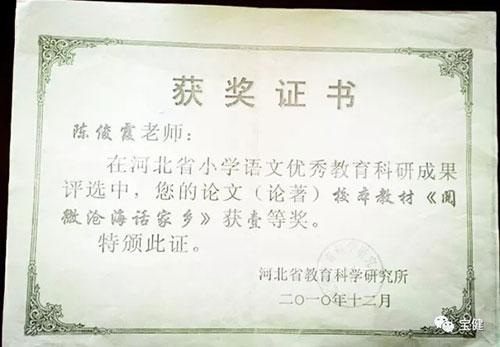 获奖证书
陈俊霞老师：
在河北省小学语文优秀教育科研成果
评选中，您的论文（论著）校本教材《阅
微沧海话家乡》获壹等奖。
特颁此证。
河北省教育科学研究所
二〇一〇年十二月
宝健